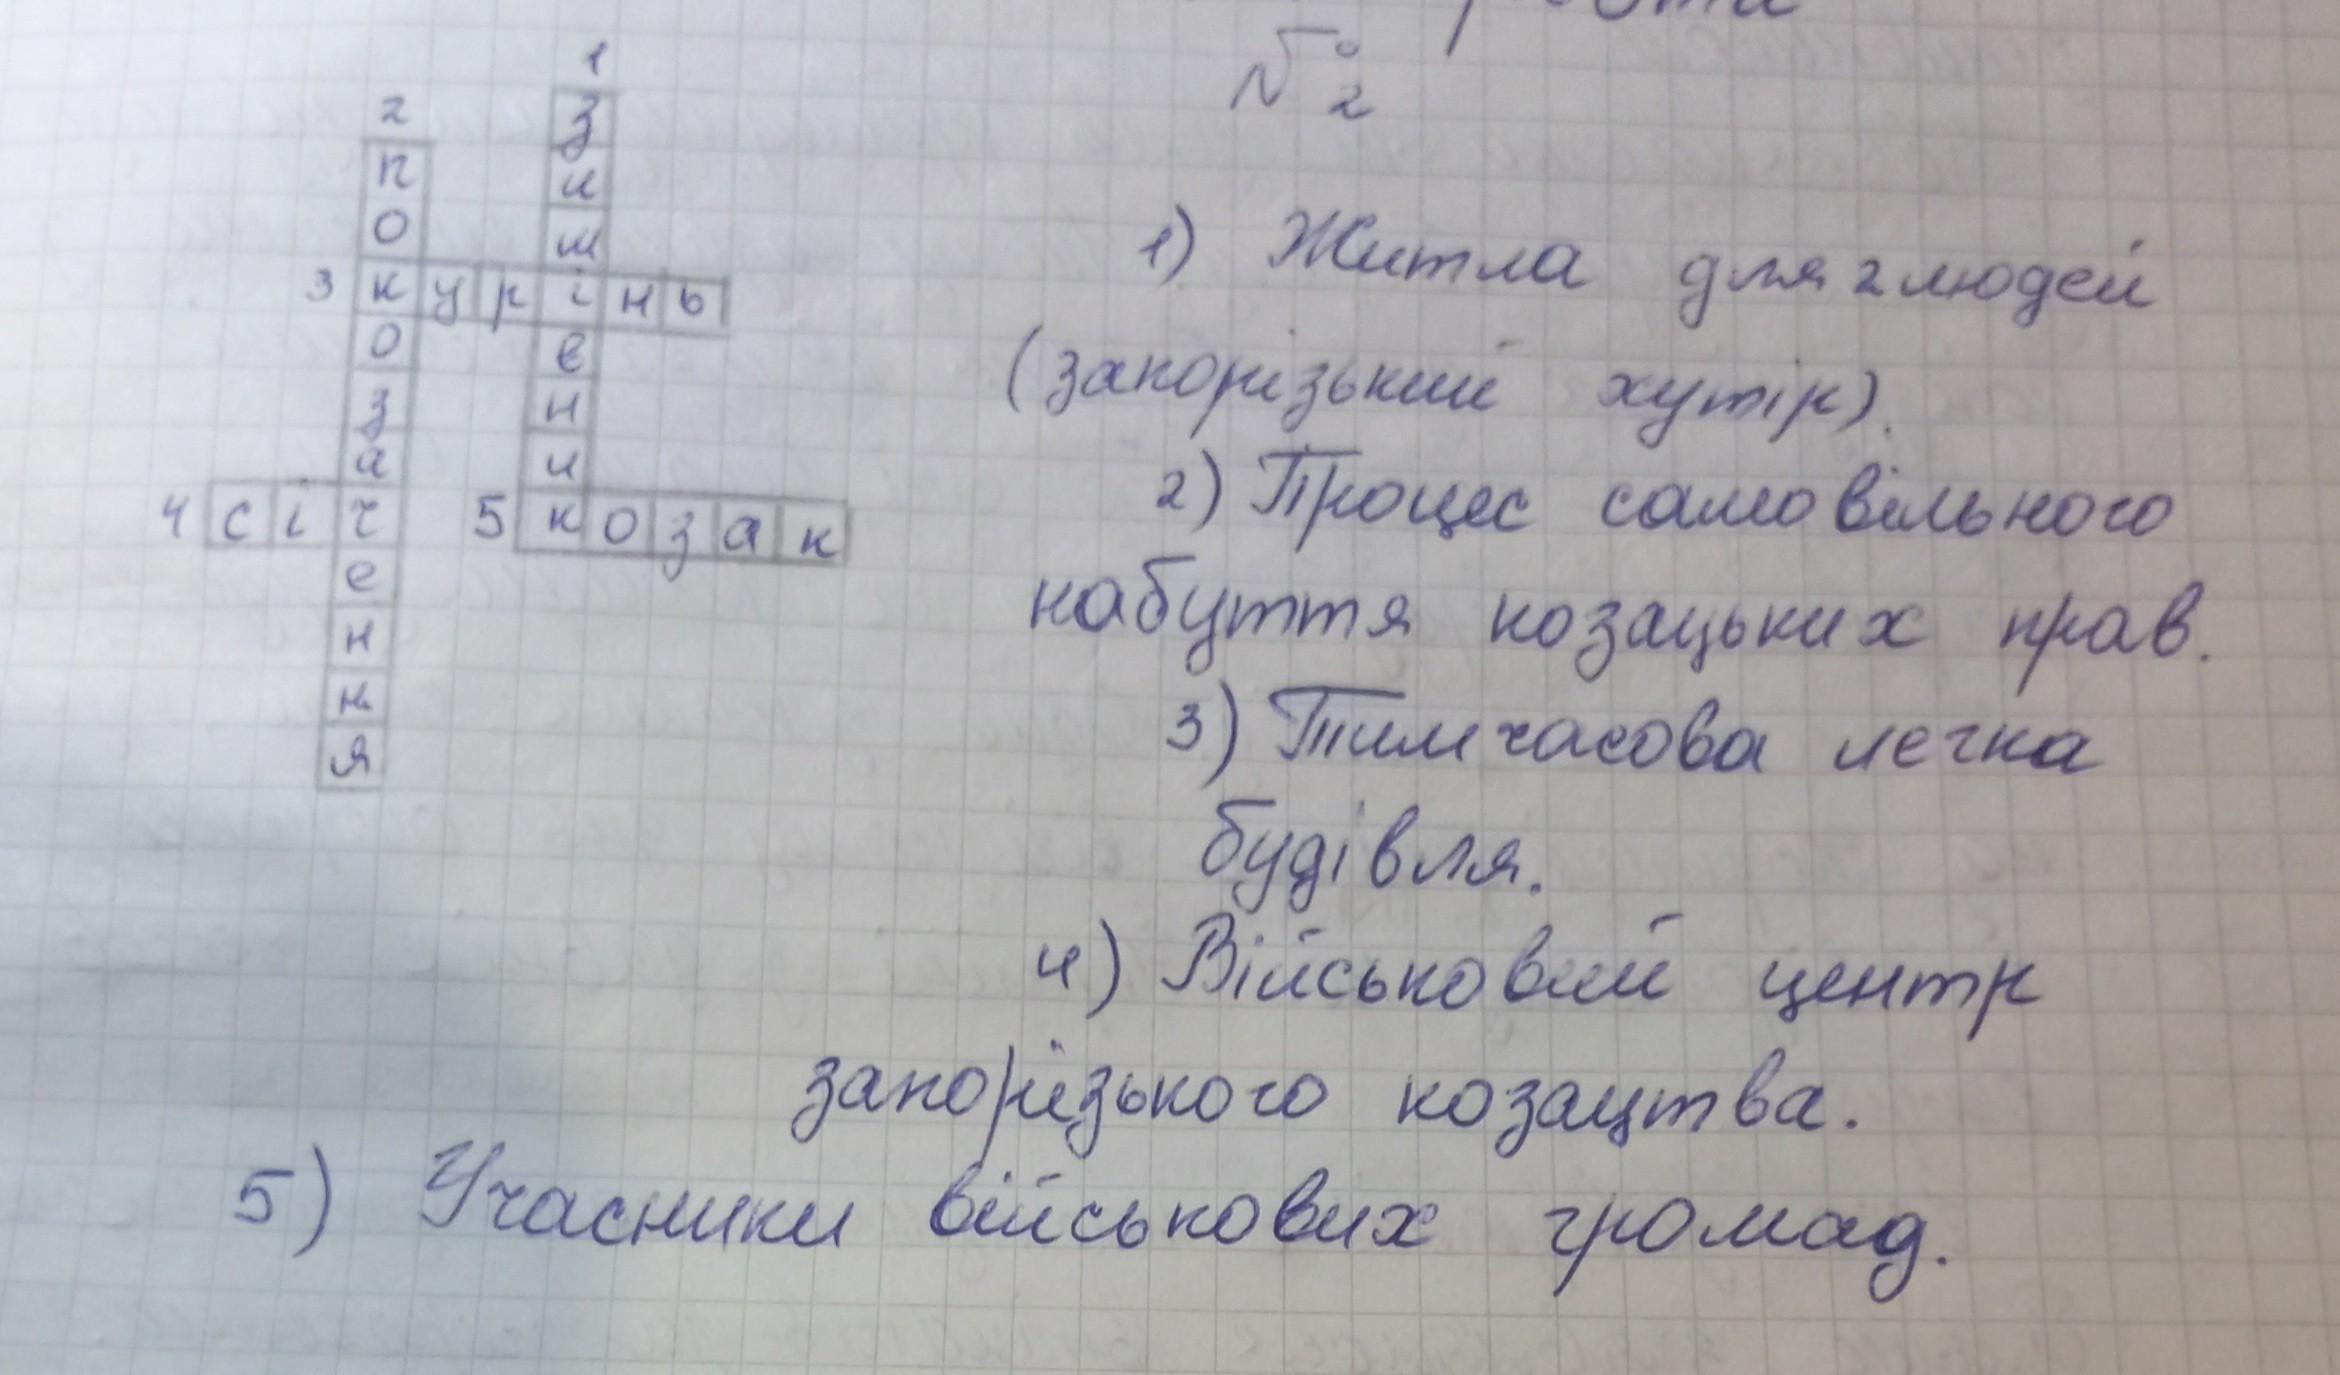 № 2
1
з
и
м
і
в
н
и
к
2
п
о
к
о
з
а
ч
е
н
н
я
3 курінь
4 січ
5 козак
1) Житла для 2 людей
(запорізький хутір).
2) Процес самовільного
набуття козацьких прав.
3) Тимчасова легка
будівля.
4) Військовий центр
запорізького козацтва.
5) Учасники військових громад.